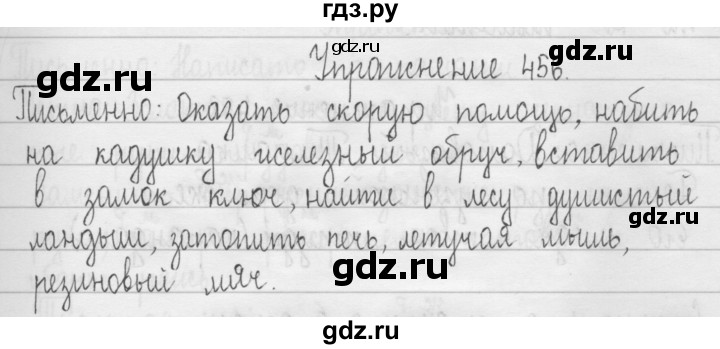 гдз.ру
gdz.ru
gdz.ru
Упражнение 456.
Письменно: Оказать скорую помощь, набить
на кадушку железный обруч, вставить
в замок ключ, найти в лесу душистый
ландыш, затопить печь, летучая мышь,
резиновый мяч.
gdz.ru
gdz.ru
gdz.ru
gdz.ru
gdz.ru
gdz.ru